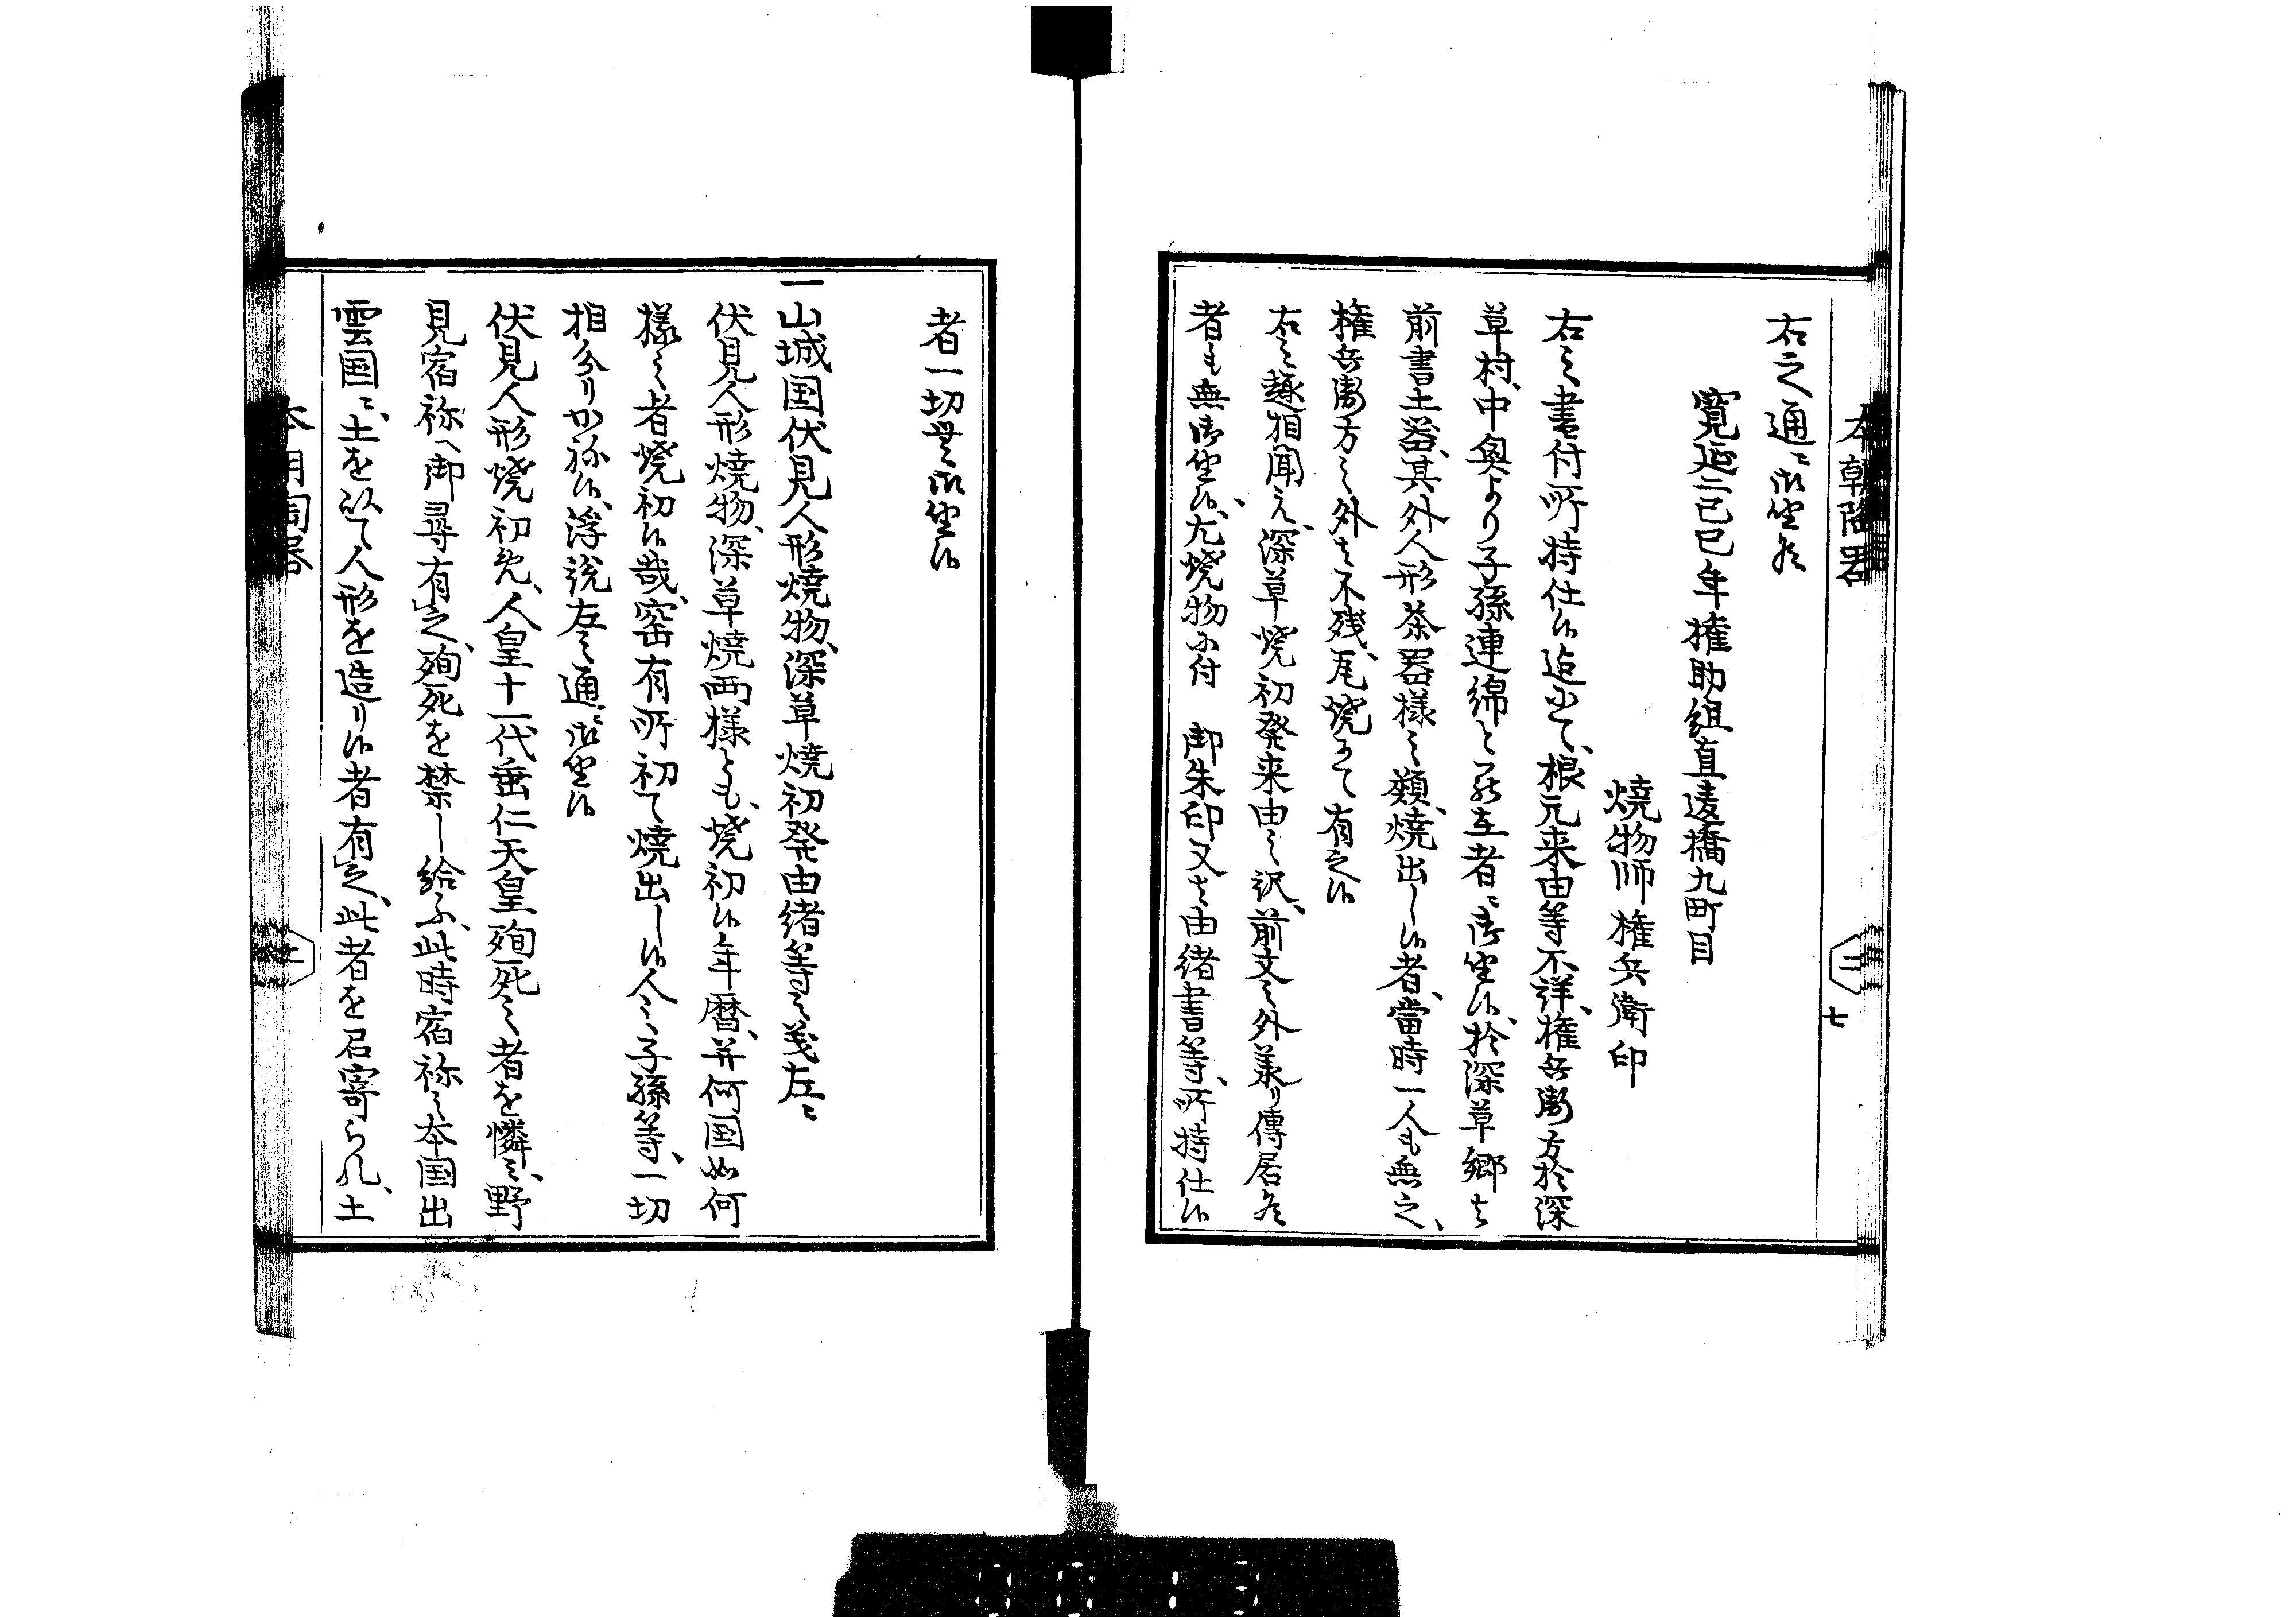 本朝陶器
二
七
右之通ニ御坐候
寛延二己巳年権助組直違橋九町目
焼物師権兵衛印
右之書付所持仕候迄ニて、根元来由等不詳、権兵衛方於深
草村、中奥より子孫連綿と罷在者ニ御坐候、於深草郷ハ
前書土器、其外人形茶器様之類、焼出し候者、當時一人も無之、
権兵衛方之外ハ不残、瓦焼にて有之候
右之趣相聞え、深草焼初発来由之訳、前文之外承り傳居候
者も無御坐候、尤焼物ニ付 御朱印又ハ由緒書等、所持仕候
者一切無御坐候
一山城国伏見人形焼物、深草焼初発由緒等之義左ニ
伏見人形焼物、深草焼両様とも、焼初候年暦、并何国如何
様之者焼初候哉、窑有所初て焼出し候人之子孫等、一切
相分りかね候、浮説左之通ニ御坐候
伏見人形焼初めハ、人皇十一代垂仁天皇殉死之者を憐ミ、野
見宿祢へ御尋有之、殉死を禁し給ふ、此時宿祢之本国出
雲国ニ、土を以て人形を造り候者有之、此者を召寄られ、土